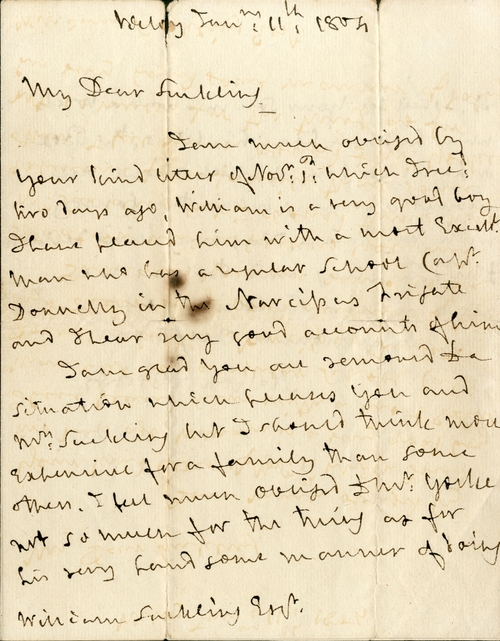 Victory Jan:ry: 11th: 1804
My Dear Suckling,
I am much obliged by
your kind letter of Nov:r: 1st: which I rec:d:
two days ago, William is a very good boy
I have placed him with a most Excell:t:
man who has a regular School Cap:t:
Donnelly in the Narcissus Frigate
and I hear very good accounts of him
I am glad you are removed to a
situation which pleases you and
Mrs: Suckling but I should think more
expensive for a family than some
others. I feel much obliged to Mr: Yorke
not so much for the thing as for
his very handsome manner of doing
William Suckling Esq:r: